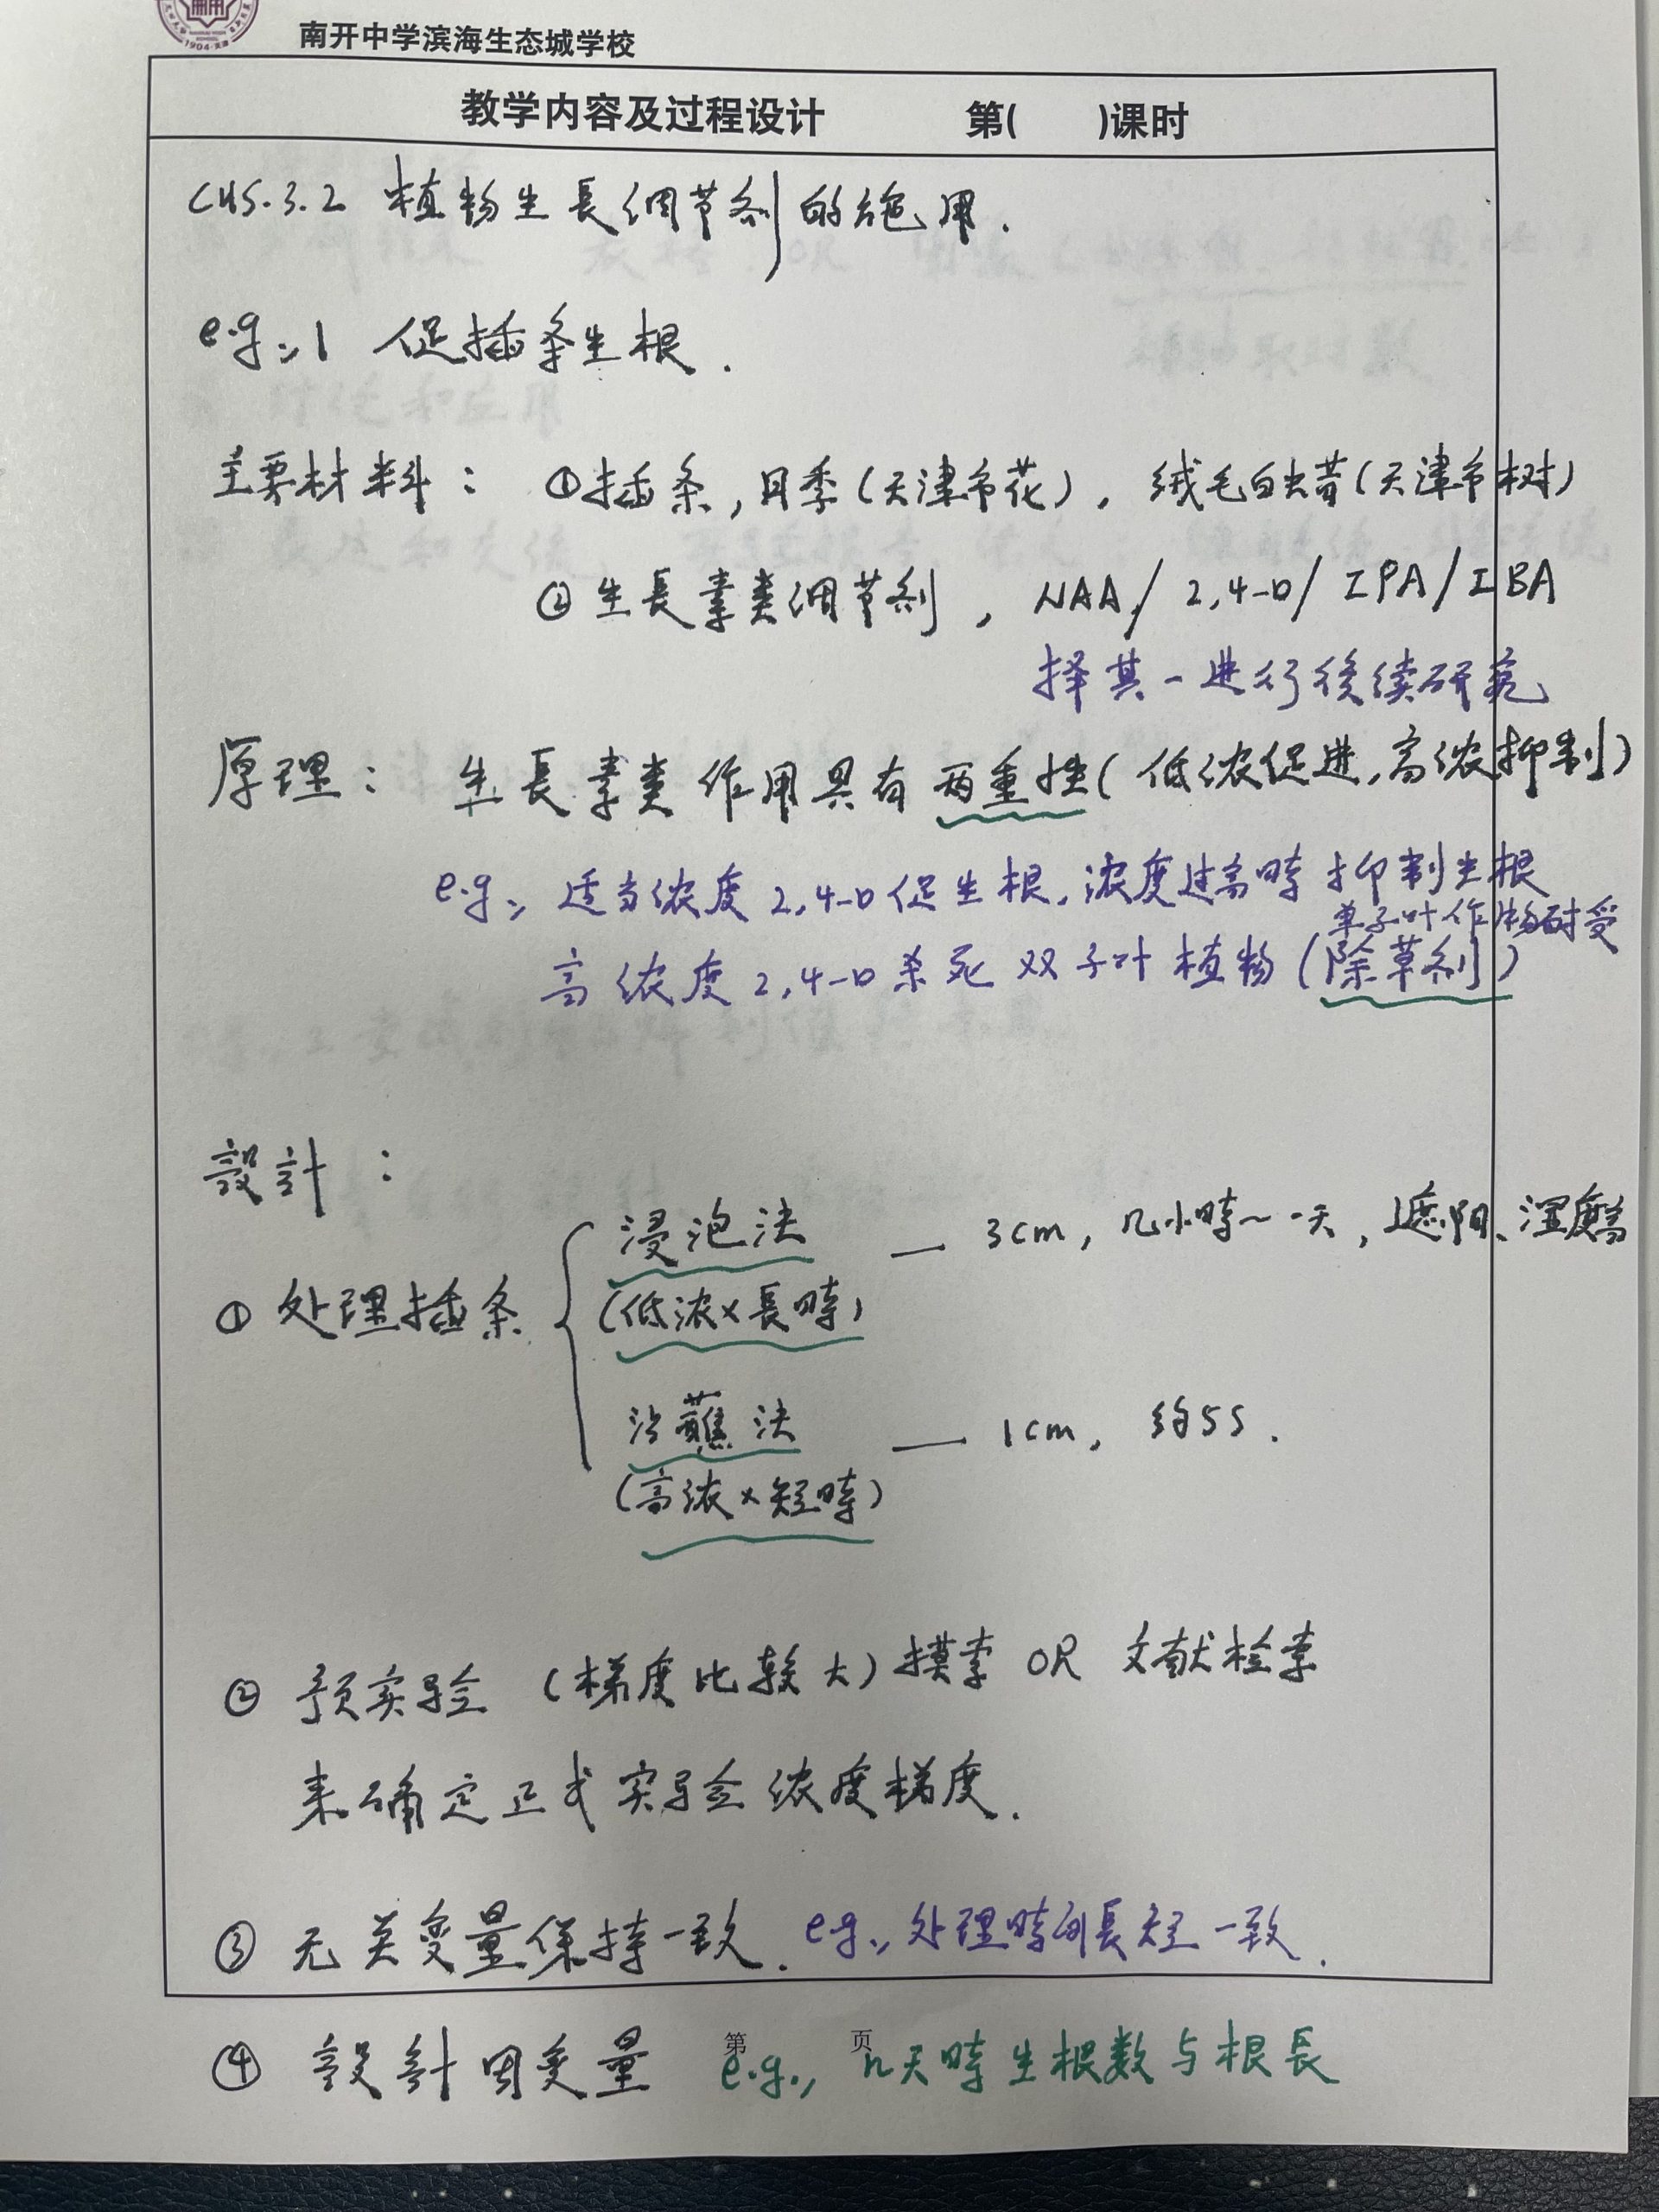 1904·天津
南开中学滨海生态城学校
教学内容及过程设计 第( )课时
CH5.3.2 植物生長调节剂的施用.
e.g.,1 促插条生根.
主要材料: ①插条,月季(天津市花),绒毛白蜡(天津市树)
②生長素类调节剂, NAA/2,4-D/IPA/IBA
择其一进行後续研究
原理: 生長素类作用具有两重性(低浓促进,高浓抑制)
e.g., 适当浓度2,4-D促生根,浓度过高時抑制生根
单子叶作物耐受
高浓度2,4-D杀死双子叶植物(除草剂)
設計:
浸泡法 — 3cm,几小時~一天,遮阴、湿度高
①处理插条 (低浓×長時)
沾蘸法 — 1cm, 约5s.
(高浓×短時)
②预实验(梯度比较大)摸索 OR 文献检索
来确定正式实验浓度梯度.
③无关变量保持一致. e.g., 处理時间長短一致.
第 页
④設計因变量 e.g., n天時生根数与根長